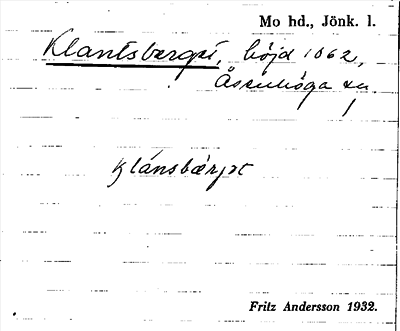 Mo hd., Jönk. l.
Klantsberget, höjd 1062,
Åsenhöga sn.
klánsbærjət
Fritz Andersson 1932.